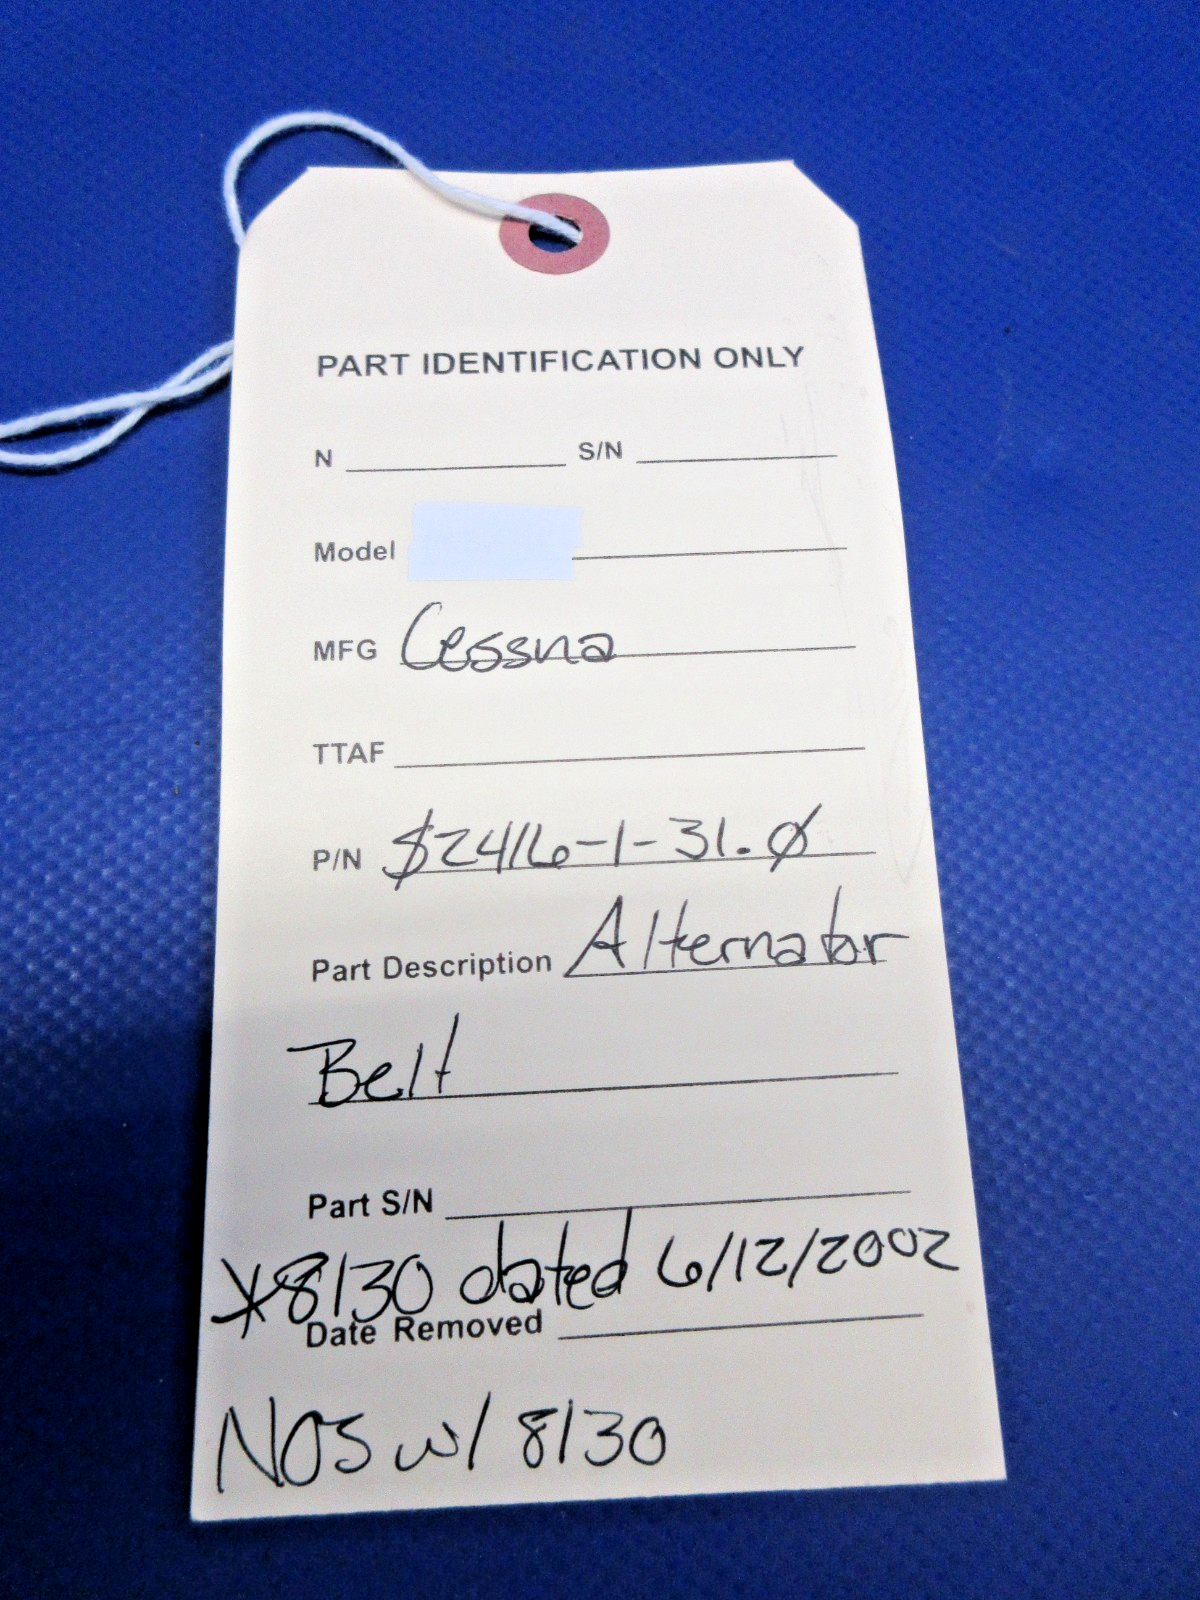 PART IDENTIFICATION ONLY
N S/N
Model
MFG Cessna
TTAF
P/N $2416-1-31.Ø
Part Description Alternator
Belt
Part S/N
*8130 dated 6/12/2002
Date Removed
NOS w/ 8130